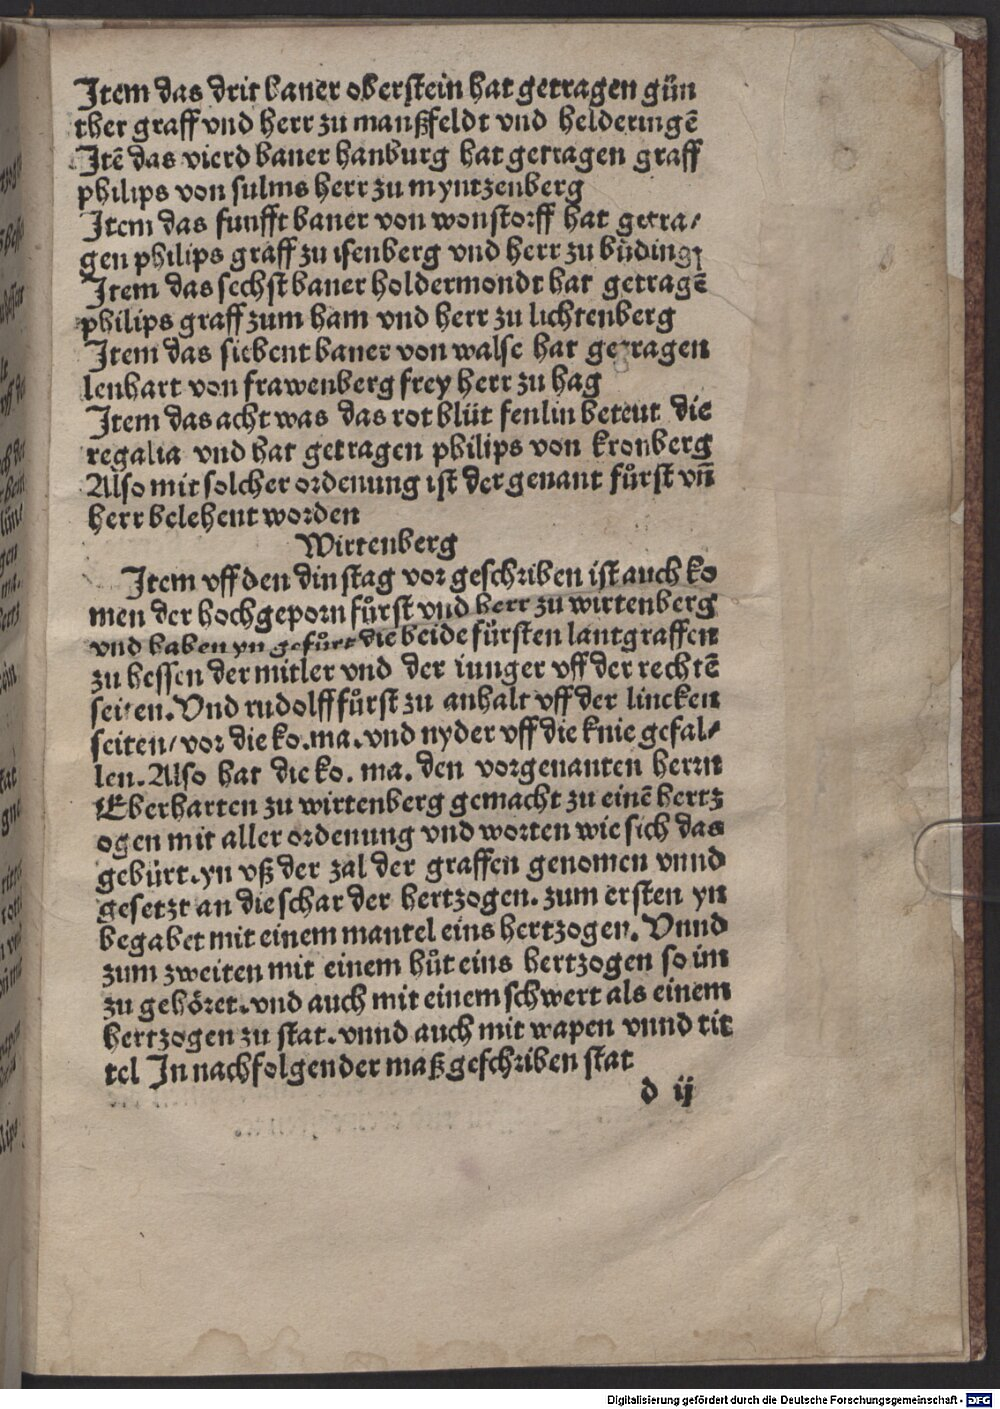 Item das drit baner oberstein hat getragen gün
ther graff vnd herr zu manßfeldt vnd helderingē
Itē das vierd baner hanburg hat getragen graff
philips von sulms herr zu myntzenberg
Item das funfft baner von wonstorff hat getra/
gen philips graff zu isenberg vnd herr zu büding
Item das sechst baner holdermondt hat getragē
philips graff zum ham vnd herr zu lichtenberg
Item das siebent baner von walse hat getragen
lenhart von frawenberg frey herr zu hag
Item das acht was das rot blüt fenlin beteut die
regalia vnd hat getragen philips von kronberg
Also mit solcher ordenung ist der genant fůrst vn̄
herr belehent worden
Wirtenberg
Item vff den dinstag vor geschriben ist auch ko
men der hochgeporn fůrst vnd herr zu wirtenberg
vnd haben yn gefůrt die beide fürsten lantgraffen
zu hessen der mitler vnd der iunger vff der rechtē
seiten. Vnd rudolff fůrst zu anhalt vff der lincken
seiten/ vor die ko. ma. vnd nyder vff die knie gefal/
len. Also hat die ko. ma. den vorgenanten herrn
Eberharten zu wirtenberg gemacht zu einē hertz
ogen mit aller ordenung vnd worten wie sich das
gebürt. yn vß der zal der graffen genomen vnnd
gesetzt an die schar der hertzogen. zum ersten yn
begabet mit einem mantel eins hertzogen. Vnnd
zum zweiten mit einem hůt eins hertzogen so im
zu gehöret. vnd auch mit einem schwert als einem
hertzogen zu stat. vnnd auch mit wapen vnnd tit
tel In nachfolgender maß geschriben stat
d ij
Digitalisierung gefördert durch die Deutsche Forschungsgemeinschaft - DFG